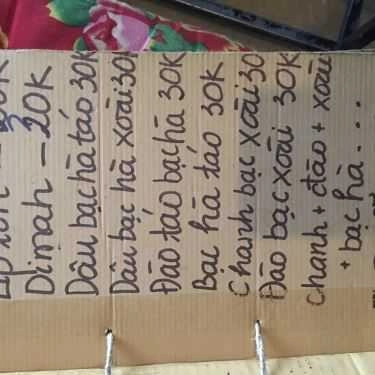 Dimah - 20K
Dâu bạc hà táo 30K
Dâu bạc hà xoài 30
Đào táo bạc hà 30K
Bạc hà táo 30K
Chanh bạc xoài 30
Đào bạc xoài 30K
Chanh + đào + xoài
+ bạc hà...